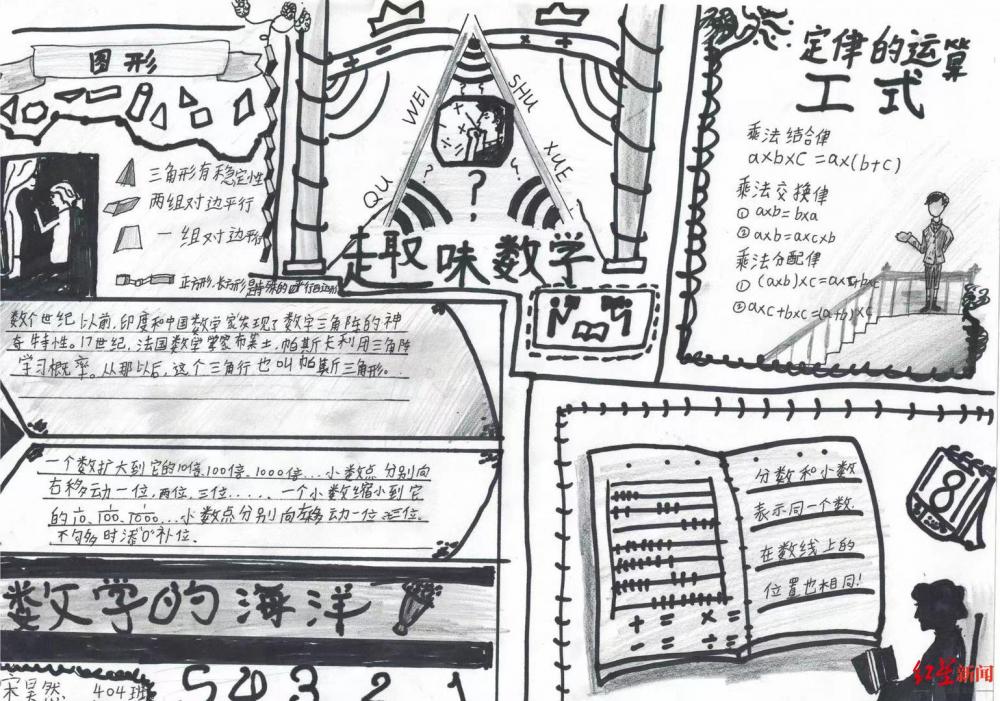 图形
三角形有稳定性
两组对边平行
一组对边平行
正方形、长方形是特殊的平行四边形
QU WEI SHU XUE
?
趣味数学
定律的运算
工式
乘法结合律
a×b×c=a×(b+c)
乘法交换律
① a×b=b×a
② a×b=a×c×b
乘法分配律
① (a×b)×c=a×c+b×c
② a×c+b×c=(a+b)×c
数个世纪以前,印度和中国数学家发现了数字三角阵的神
奇特性。17世纪,法国数学家布莱士.帕斯卡利用三角阵
学习概率。从那以后,这个三角行也叫帕斯三角形。
一个数扩大到它的10倍、100倍、1000倍...小数点分别向
右移动一位,两位,三位......一个小数缩小到它
的1/10、1/100、1/1000...小数点分别向左移动一位 三位、
不够多时添"0"补位。
数学的海洋
宋昊然. 404班
5 0 3 2 1
分数和小数
表示同一个数.
在数线上的
位置也相同!
+ = × =
- = ÷ =
8
红星新闻